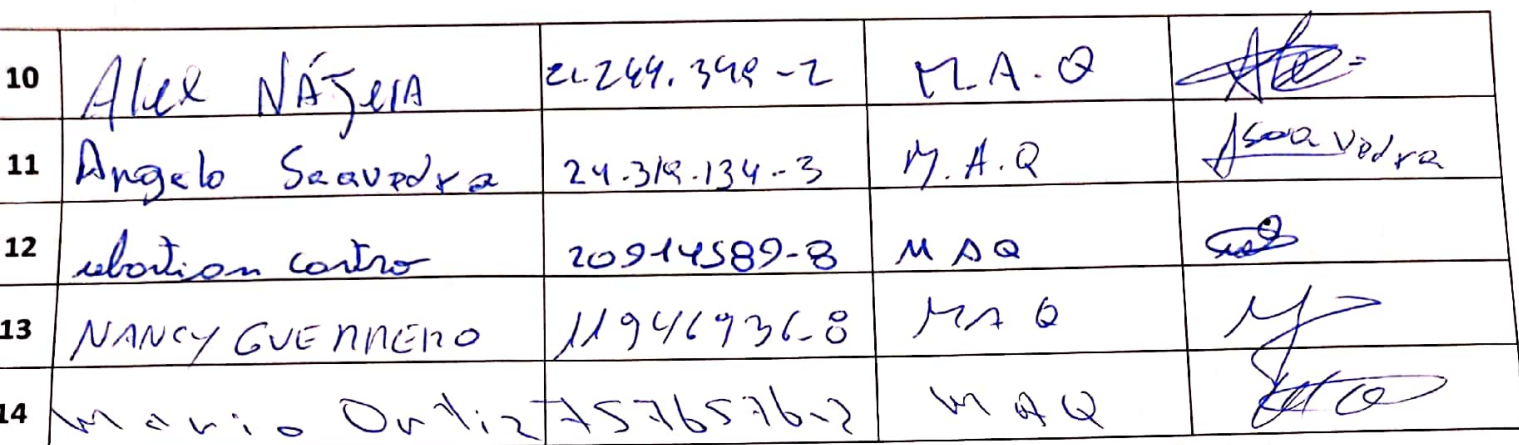 10 Alex NÁJERA 21.244.348-2 M.A.Q
11 Angelo Saavedra 24.319.134-3 M.A.Q Asaavedra
12 sebastian castro 20914589-8 MAQ
13 NANCY GUERRERO 11946936-8 MAQ
14 Mario Ortiz 7576576-2 MAQ